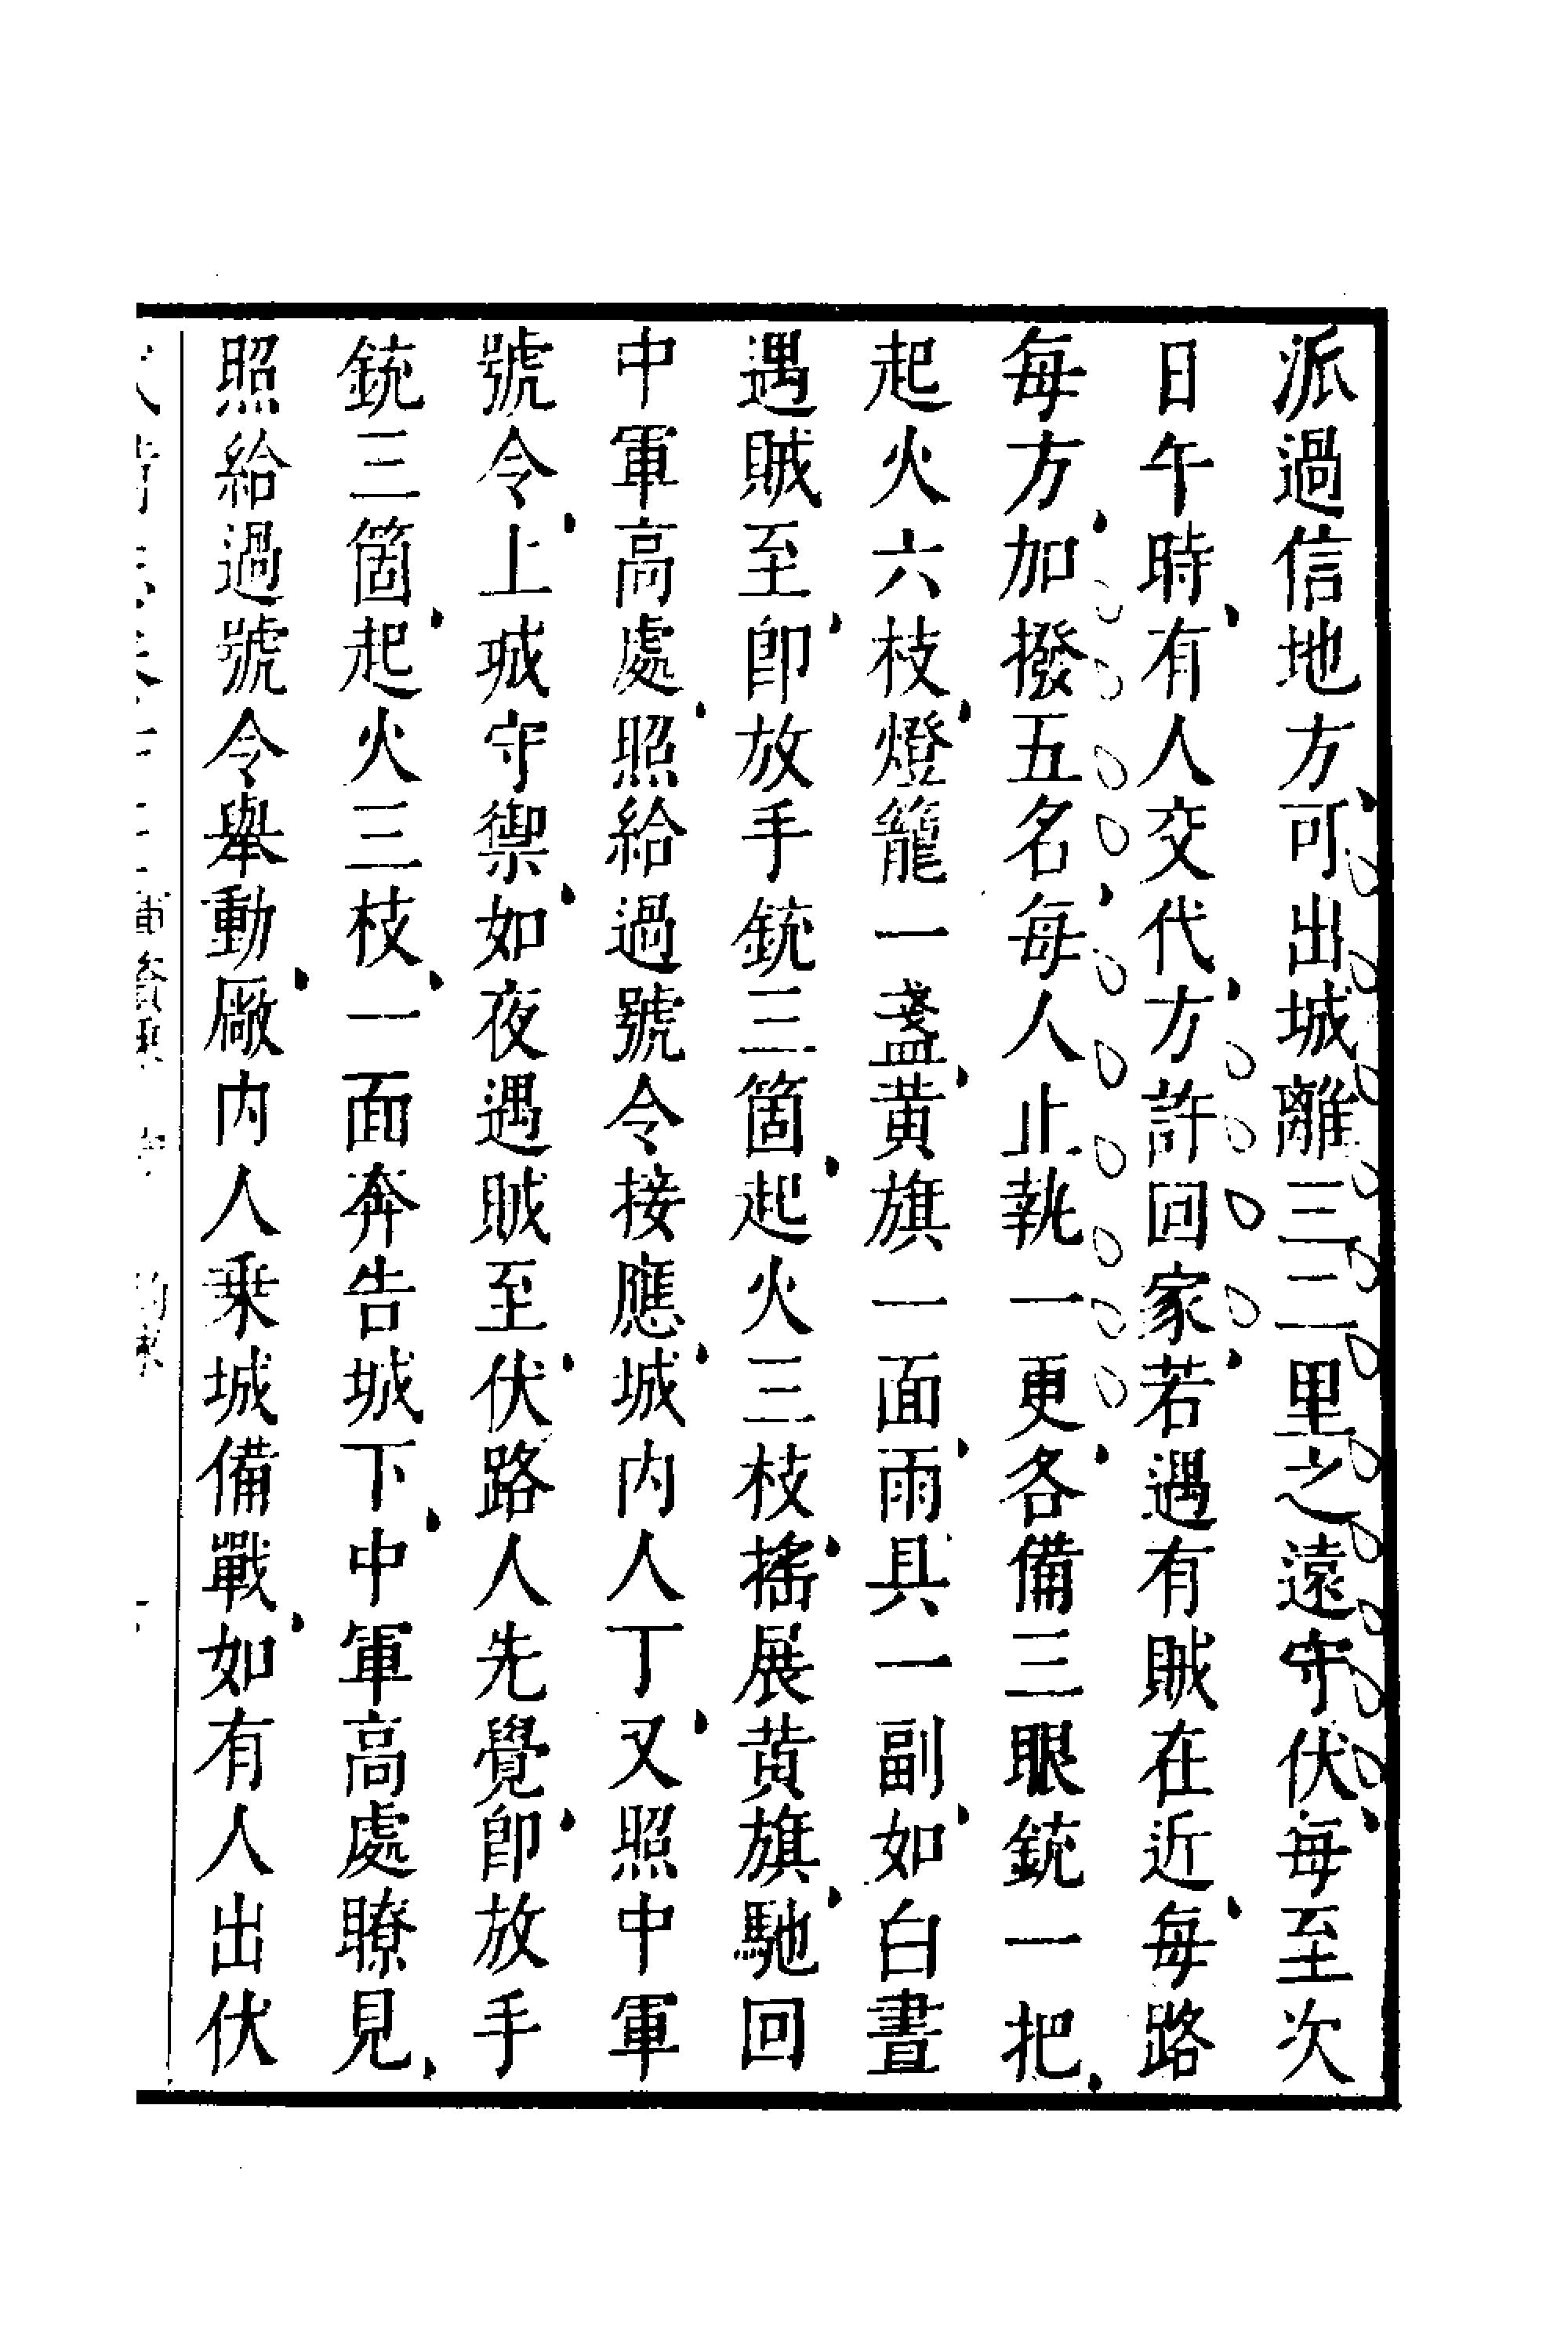 派過信地方可出城離三二里之遠守伏每至次
日午時有人交代方許回家若遇有賊在近每路
每方加撥五名每人止執一更各備三眼銃一把
起火六枝燈籠一盞黃旗一面雨具一副如白晝
遇賊至即放手銃三箇起火三枝搖展黃旗馳回
中軍高處照給過號令接應城內人丁又照中軍
號令上城守禦如夜遇賊至伏路人先覺即放手
銃三箇起火三枝一面奔告城下中軍高處瞭見
照給過號令舉動廠內人乗城備戰如有人出伏